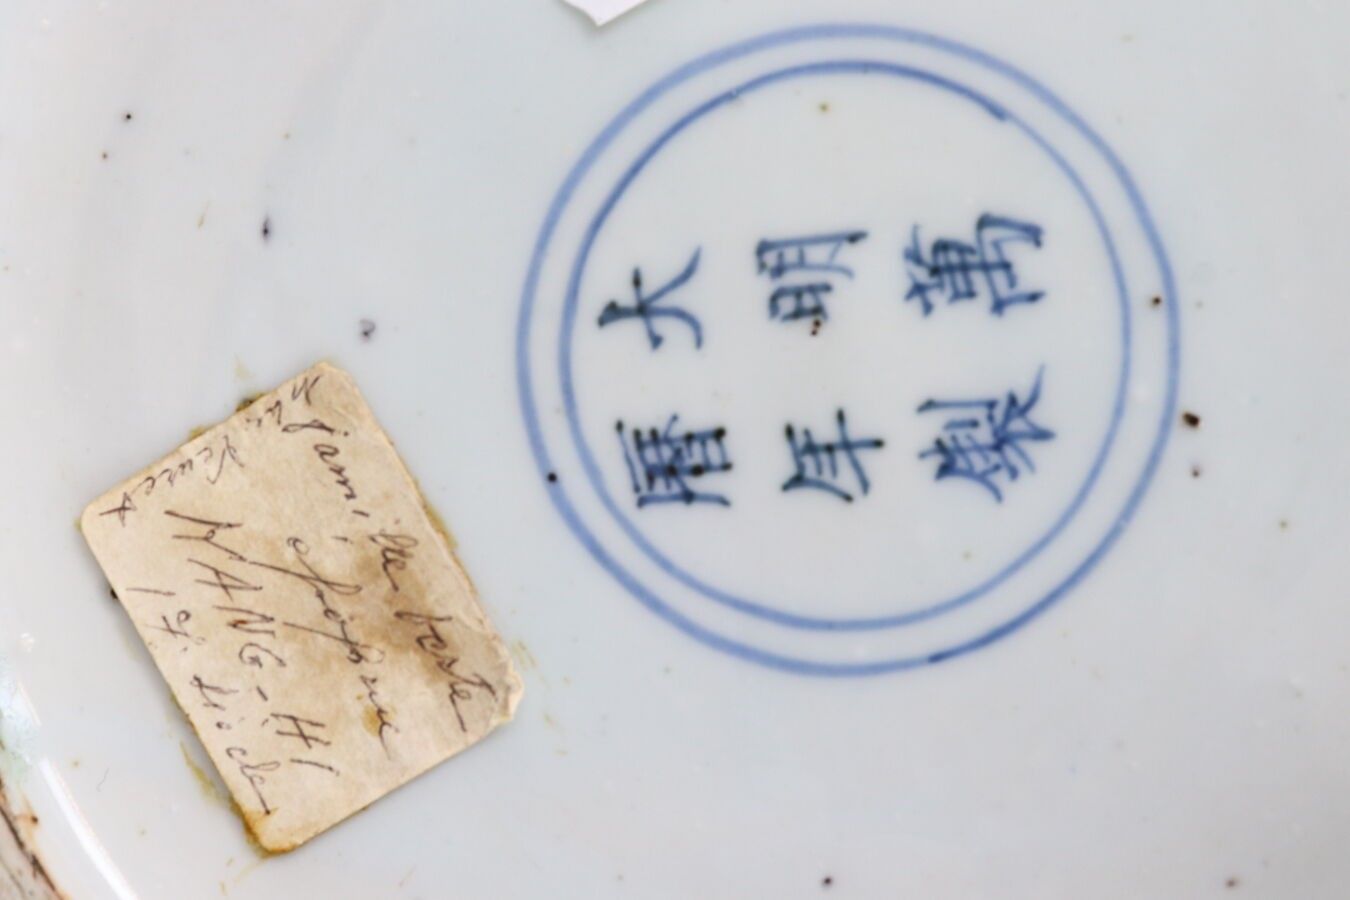 大明萬
曆年製
famille verte
époque
KANG-HI
17e siècle